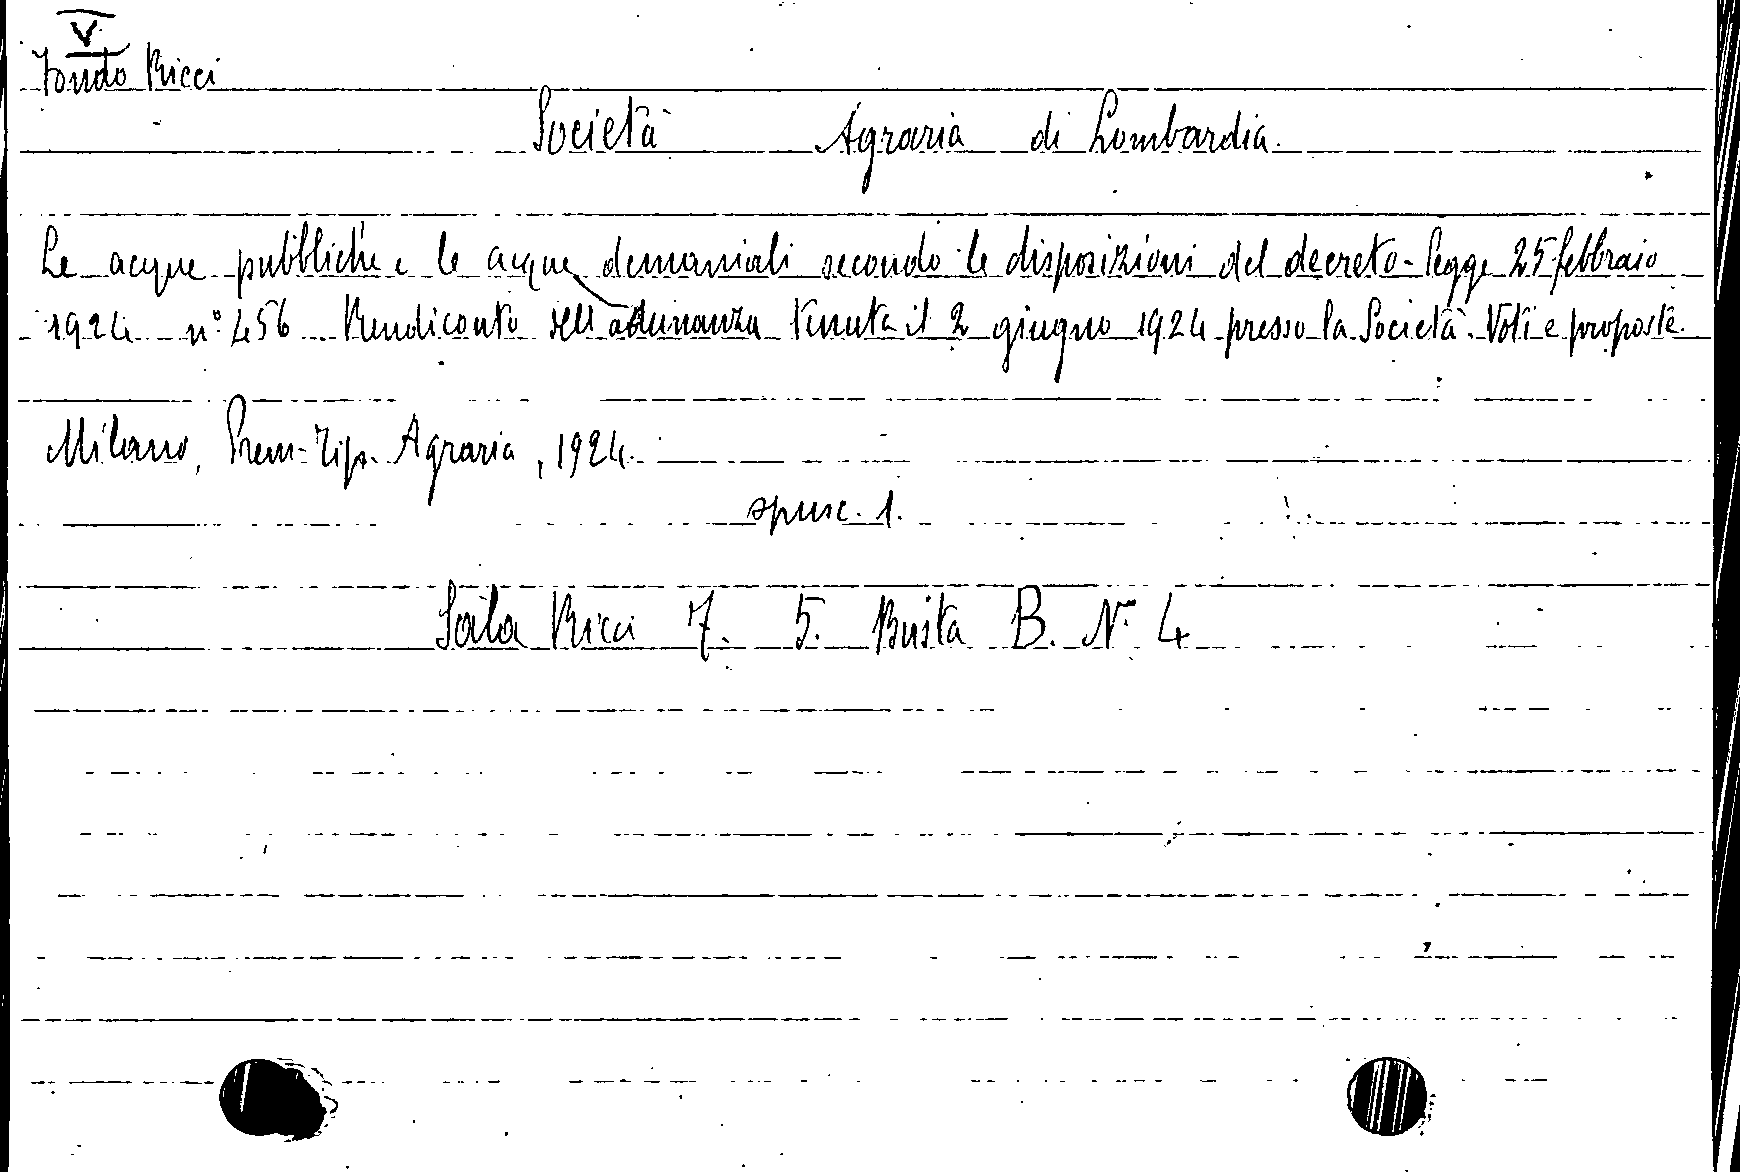 V
Fondo Ricci
Società Agraria di Lombardia.
Le acque pubbliche e le acque demaniali secondo le disposizioni del decreto-legge 25 febbraio
1924 n° 456. Rendiconto dell'adunanza tenuta il 2 giugno 1924 presso la Società. Voti e proposte.
Milano, Prem. Tip. Agraria, 1924.
opusc. 1.
Sala Ricci 7. 5. Busta B. N° 4